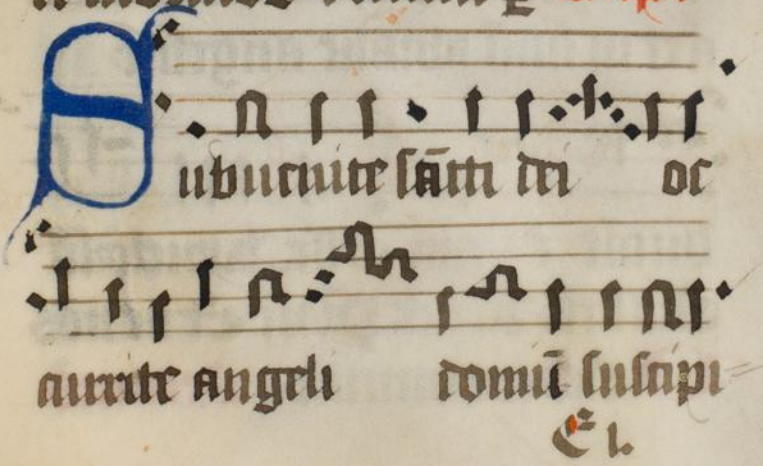 Subuenite sãcti dei oc
currite angeli domĩ suscipi